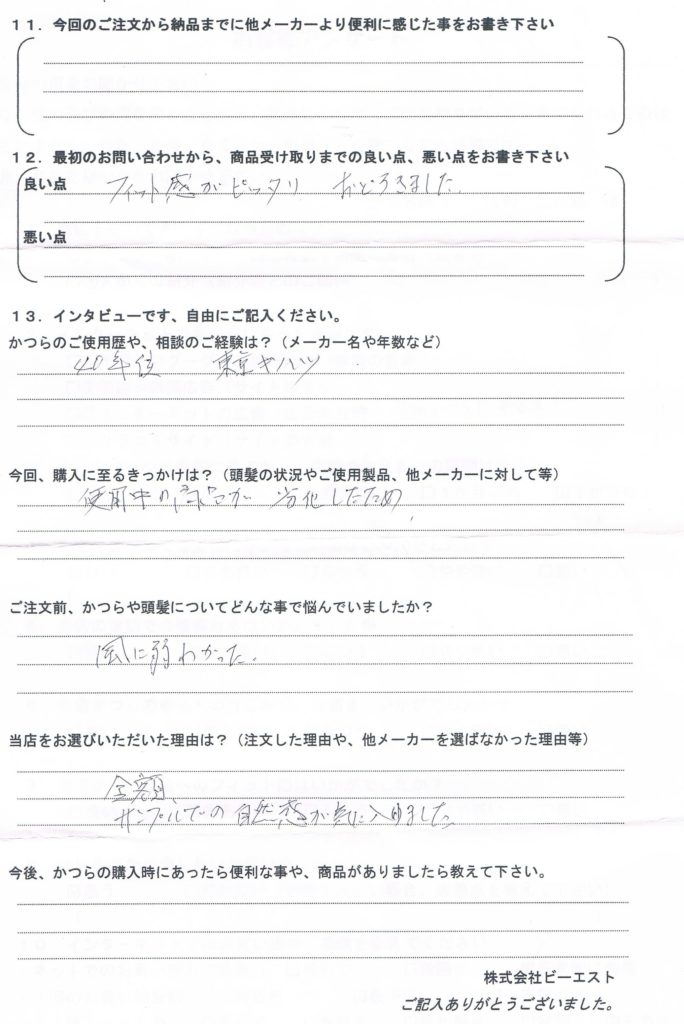 11．今回のご注文から納品までに他メーカーより便利に感じた事をお書き下さい
12．最初のお問い合わせから、商品受け取りまでの良い点、悪い点をお書き下さい
良い点 フィット感がピッタリ おどろきました.
悪い点
13．インタビューです、自由にご記入ください。
かつらのご使用歴や、相談のご経験は？（メーカー名や年数など）
40年位 東京キハツ
今回、購入に至るきっかけは？（頭髪の状況やご使用製品、他メーカーに対して等）
使用中の 劣化したため
ご注文前、かつらや頭髪についてどんな事で悩んでいましたか？
風に弱わかった.
当店をお選びいただいた理由は？（注文した理由や、他メーカーを選ばなかった理由等）
金額、
サンプルでの自然感が気に入りました。
今後、かつらの購入時にあったら便利な事や、商品がありましたら教えて下さい。
株式会社ビーエスト
ご記入ありがとうございました。